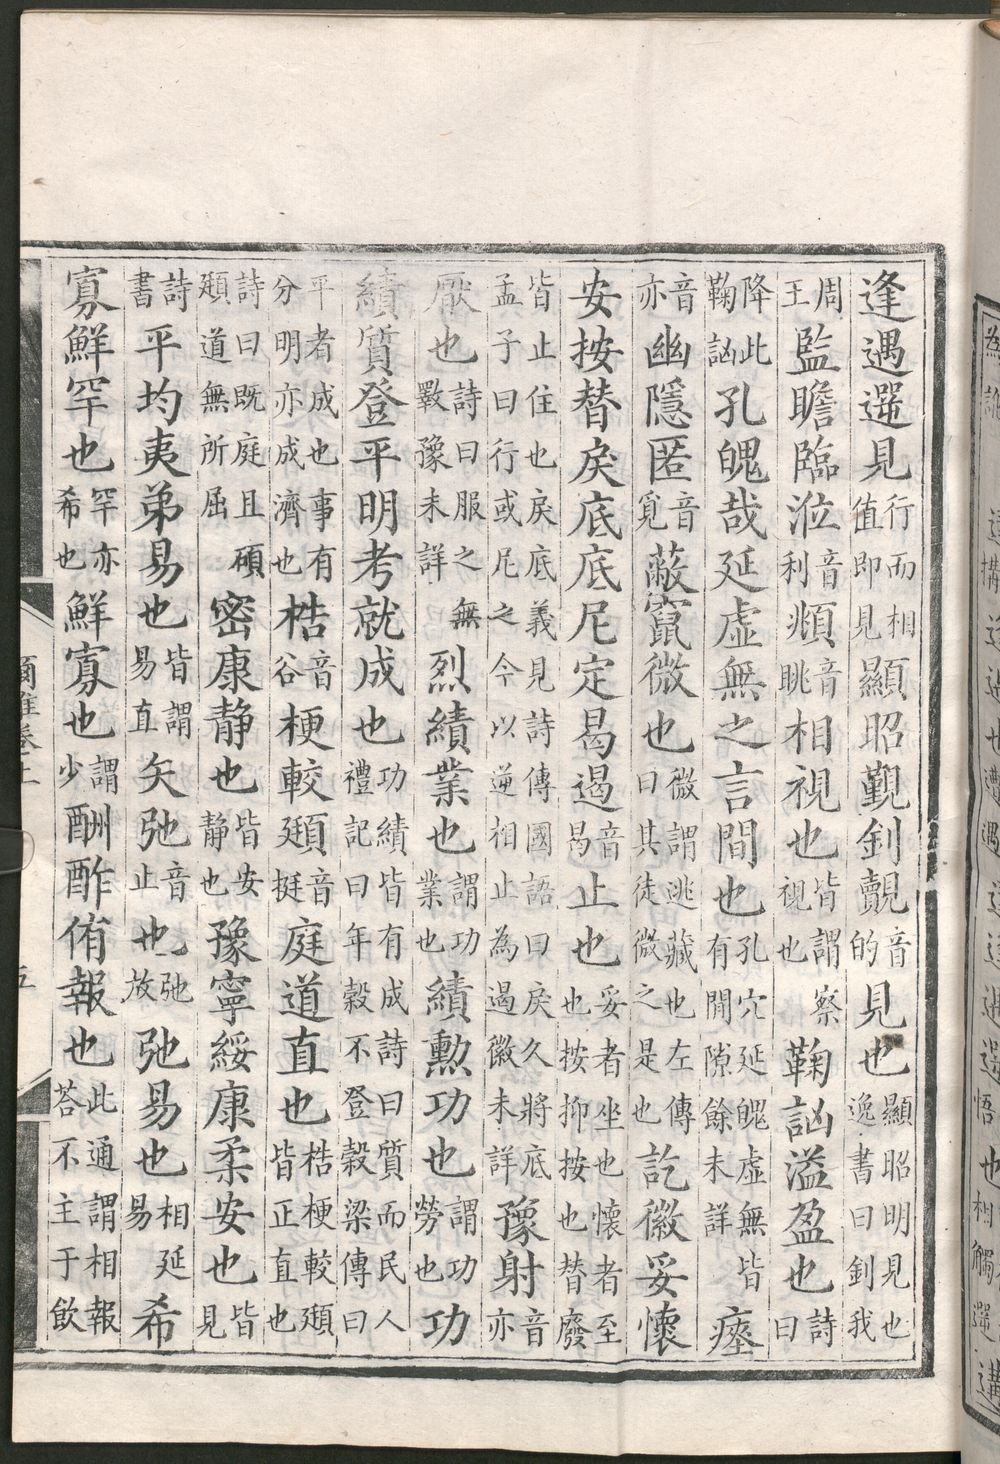 逢遇遻見行而相值即見顯昭覲釗覿音的見也顯昭明見也逸書曰釗我
周王監瞻臨涖音利頫音眺相視也皆謂察視也鞠訩溢盈也詩曰
降此鞠訩孔魄哉延虛無之言間也孔穴延魄虛無皆有間隙餘未詳瘞
音亦幽隱匿音覓蔽竄微也微謂逃藏也左傳曰其徒微之是也訖徽妥懷
安按替戾底底尼定曷遏音曷止也妥者坐也懷者至也按抑按也替廢
皆止住也戾底義見詩傳國語曰戾久將底孟子曰行或尼之今以逆相止為遏徽未詳豫射音亦
厭也詩曰服之無斁豫未詳烈績業也謂功業也績勳功也謂功勞也功
績質登平明考就成也功績皆有成詩曰質而民人禮記曰年穀不登穀梁傳曰
平者成也事有分明亦成濟也梏音谷梗較頲音挺庭道直也梏梗較頲皆正直也
詩曰既庭且碩頲道無所屈密康靜也皆安靜也豫寧綏康柔安也皆見
詩書平均夷弟易也皆謂易直矢弛音止也弛放弛易也相延易希
寡鮮罕也罕亦希也鮮寡也謂少酬酢侑報也此通謂相報荅不主于飲
爾雅卷上
五